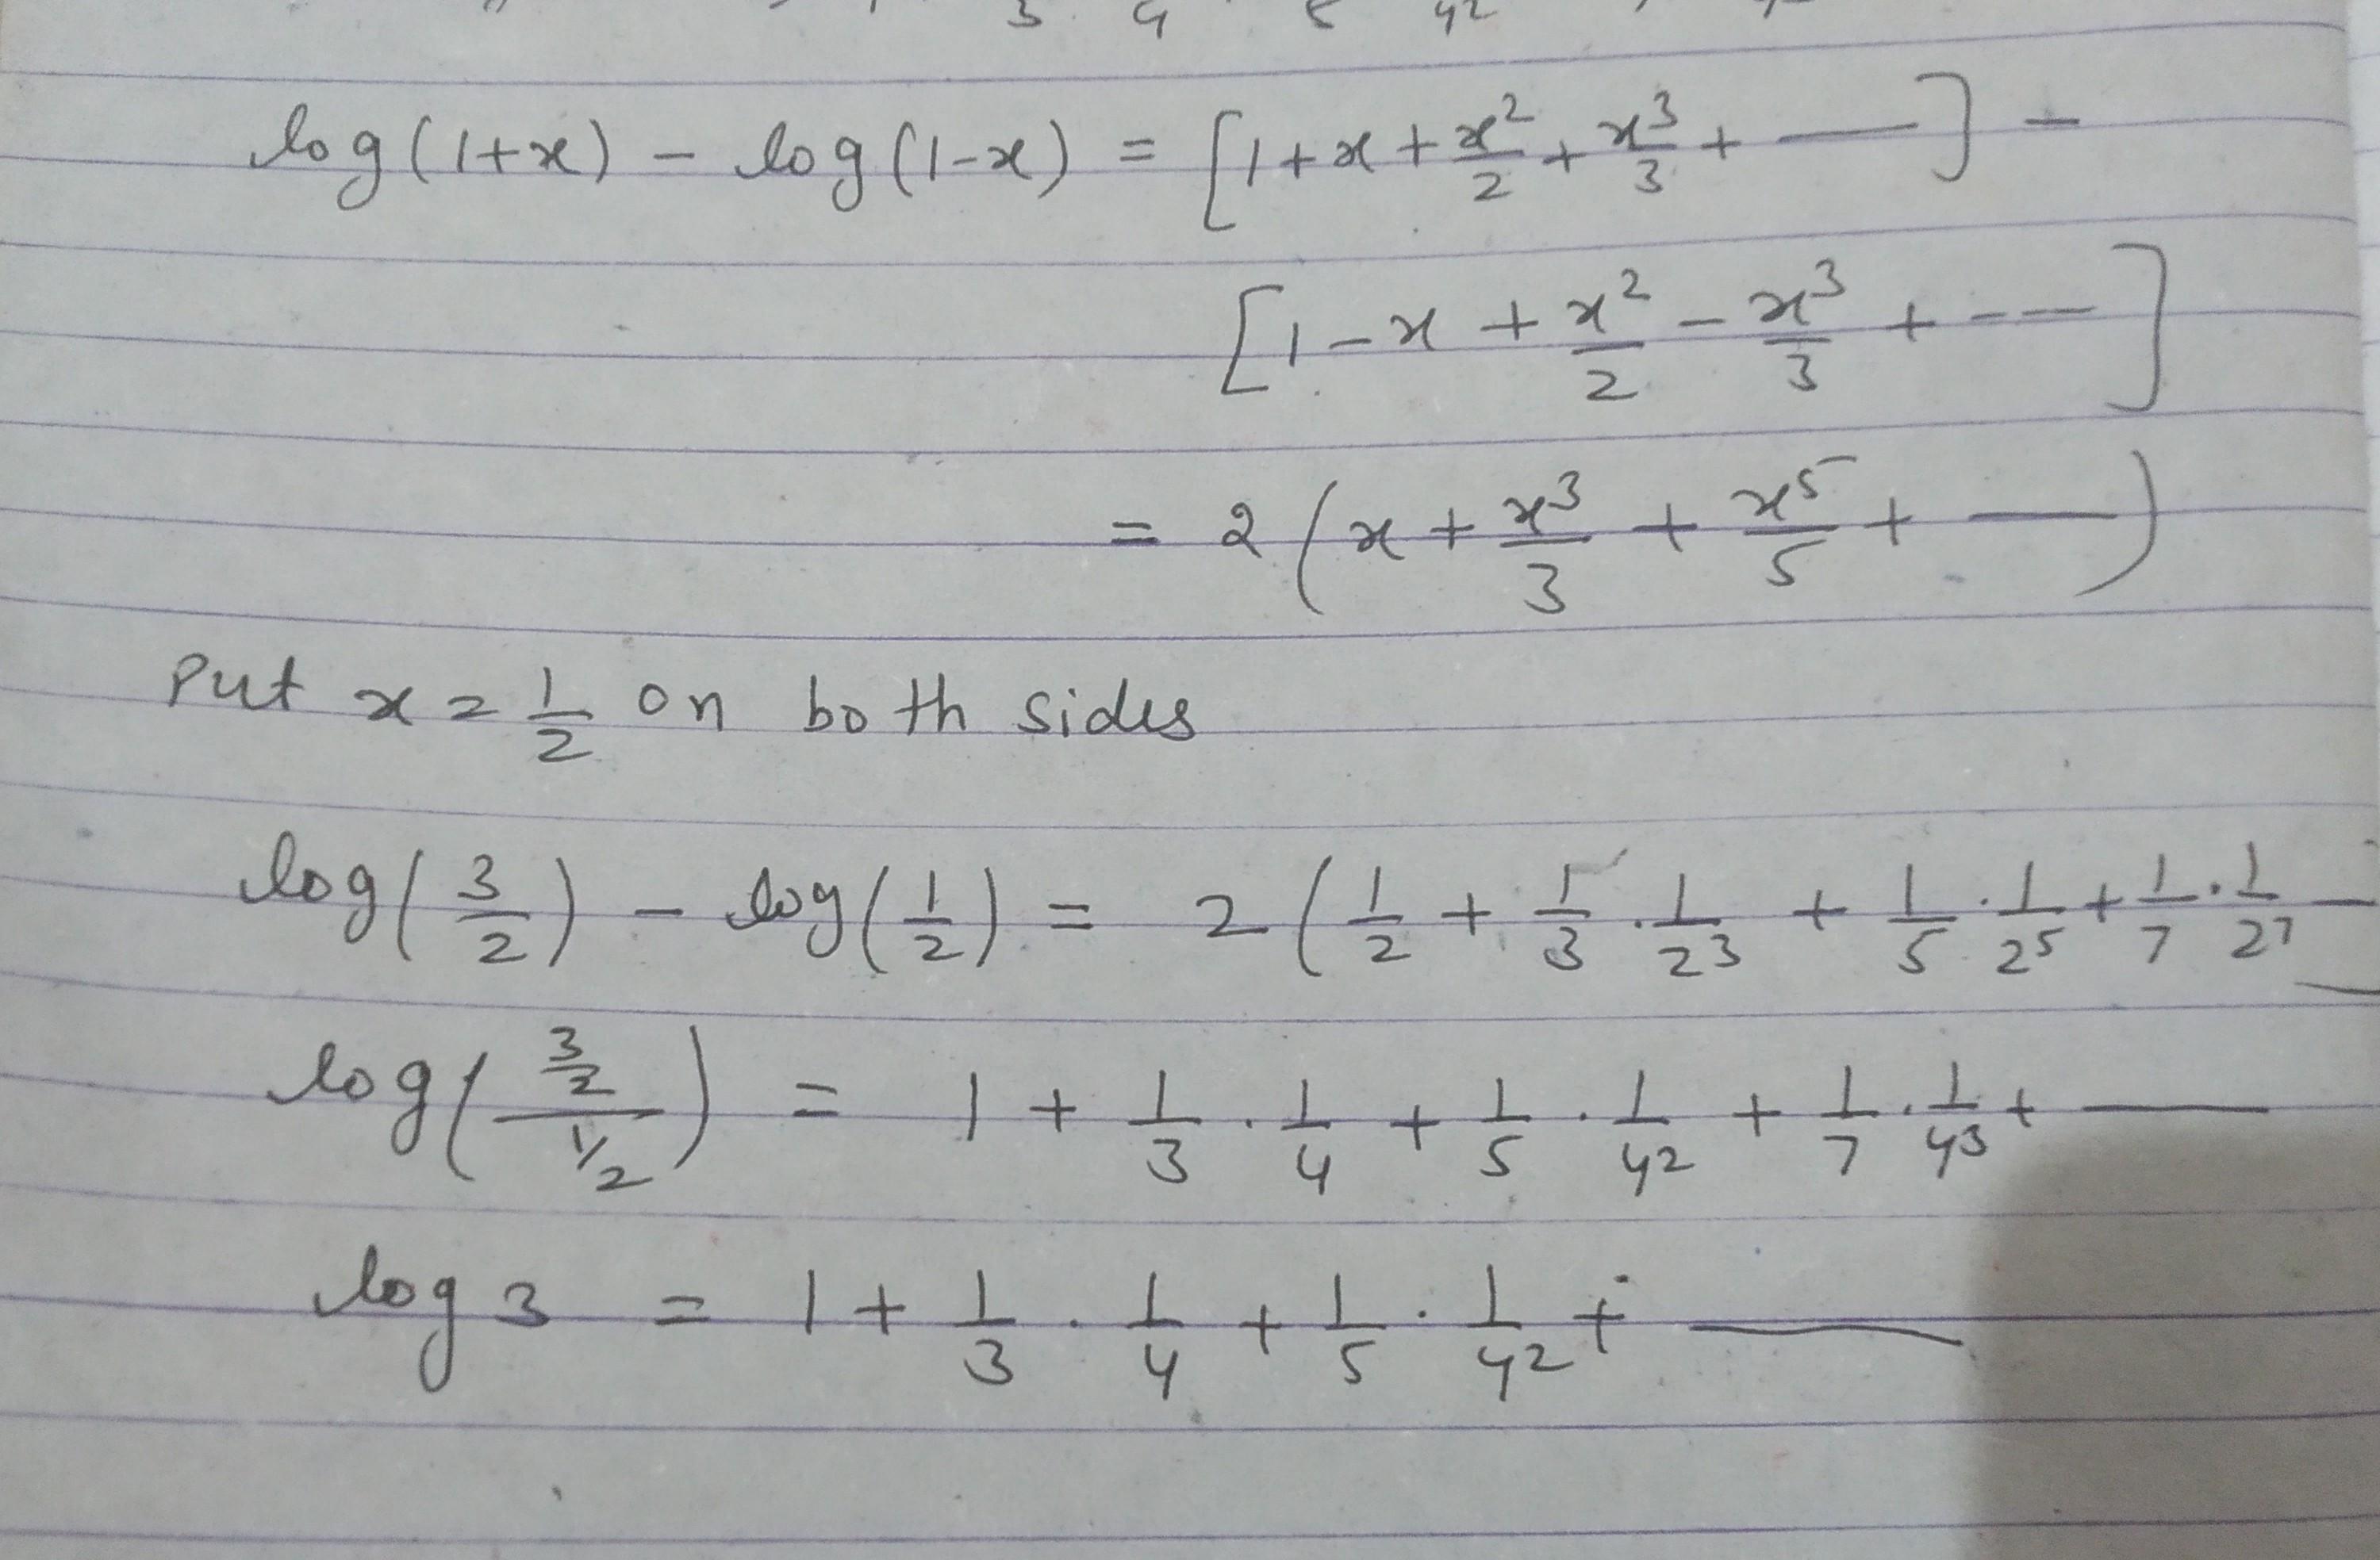 3 4 5 4²
log(1+x) - log(1-x) = [1+x+x²/2+x³/3+ ——] -
[1-x+x²/2-x³/3+ ---]
= 2(x+x³/3+x⁵/5+ ——)
Put x = 1/2 on both sides
log(3/2) - log(1/2) = 2(1/2+1/3·1/2³+1/5·1/2⁵+1/7·1/2⁷ —
log((3/2)/(1/2)) = 1+1/3·1/4+1/5·1/4²+1/7·1/4³+ ——
log 3 = 1+1/3·1/4+1/5·1/4²+ ——